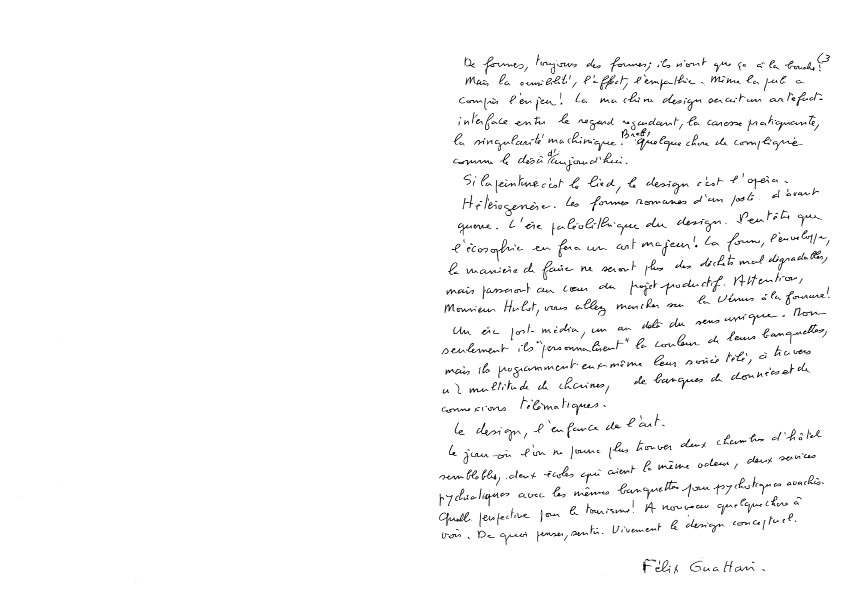 (3
De formes, toujours des formes; ils n'ont que ça à la bouche!
Mais la sensibilité, l'affect, l'empathie. Même la pub a
compris l'enjeu! La machine design serait un artefact-
interface entre le regard regardant, la caresse pratiquante,
la singularité machinique. Bref! Quelque chose de compliqué
comme le désir d'aujourd'hui.
Si la peinture c'est le lied, le design c'est l'opéra.
Hétérogenèse. Les formes romanes d'un poste d'avant
guerre. L'ère paléolithique du design. Peut être que
l'écosophie en fera un art majeur! La forme, l'enveloppe,
la manière de faire ne seront plus des déchets mal dégradables,
mais passeront au cœur du projet productif. Attention,
Monsieur Hulot, vous allez marcher sur la Vénus à la fourrure!
Un ère post-média, un au delà du sens unique. Non
seulement ils "personnalisent" la couleur de leurs banquettes,
mais ils programment eux-même leur soirée télé, à travers
multitude de chaines, de banques de données et de
connexions télématiques.
Le design, l'enfance de l'art.
Le jour où l'on ne pourra plus trouver deux chambres d'hôtel
semblables, deux écoles qui aient la même odeur, deux services
psychiatiques avec les mêmes banquettes pour psychotiques avachis.
Quelle perspective pour le tourisme! A nouveau quelque chose à
voir. De quoi penser, sentir. Vivement le design conceptuel.
Félix Guattari.